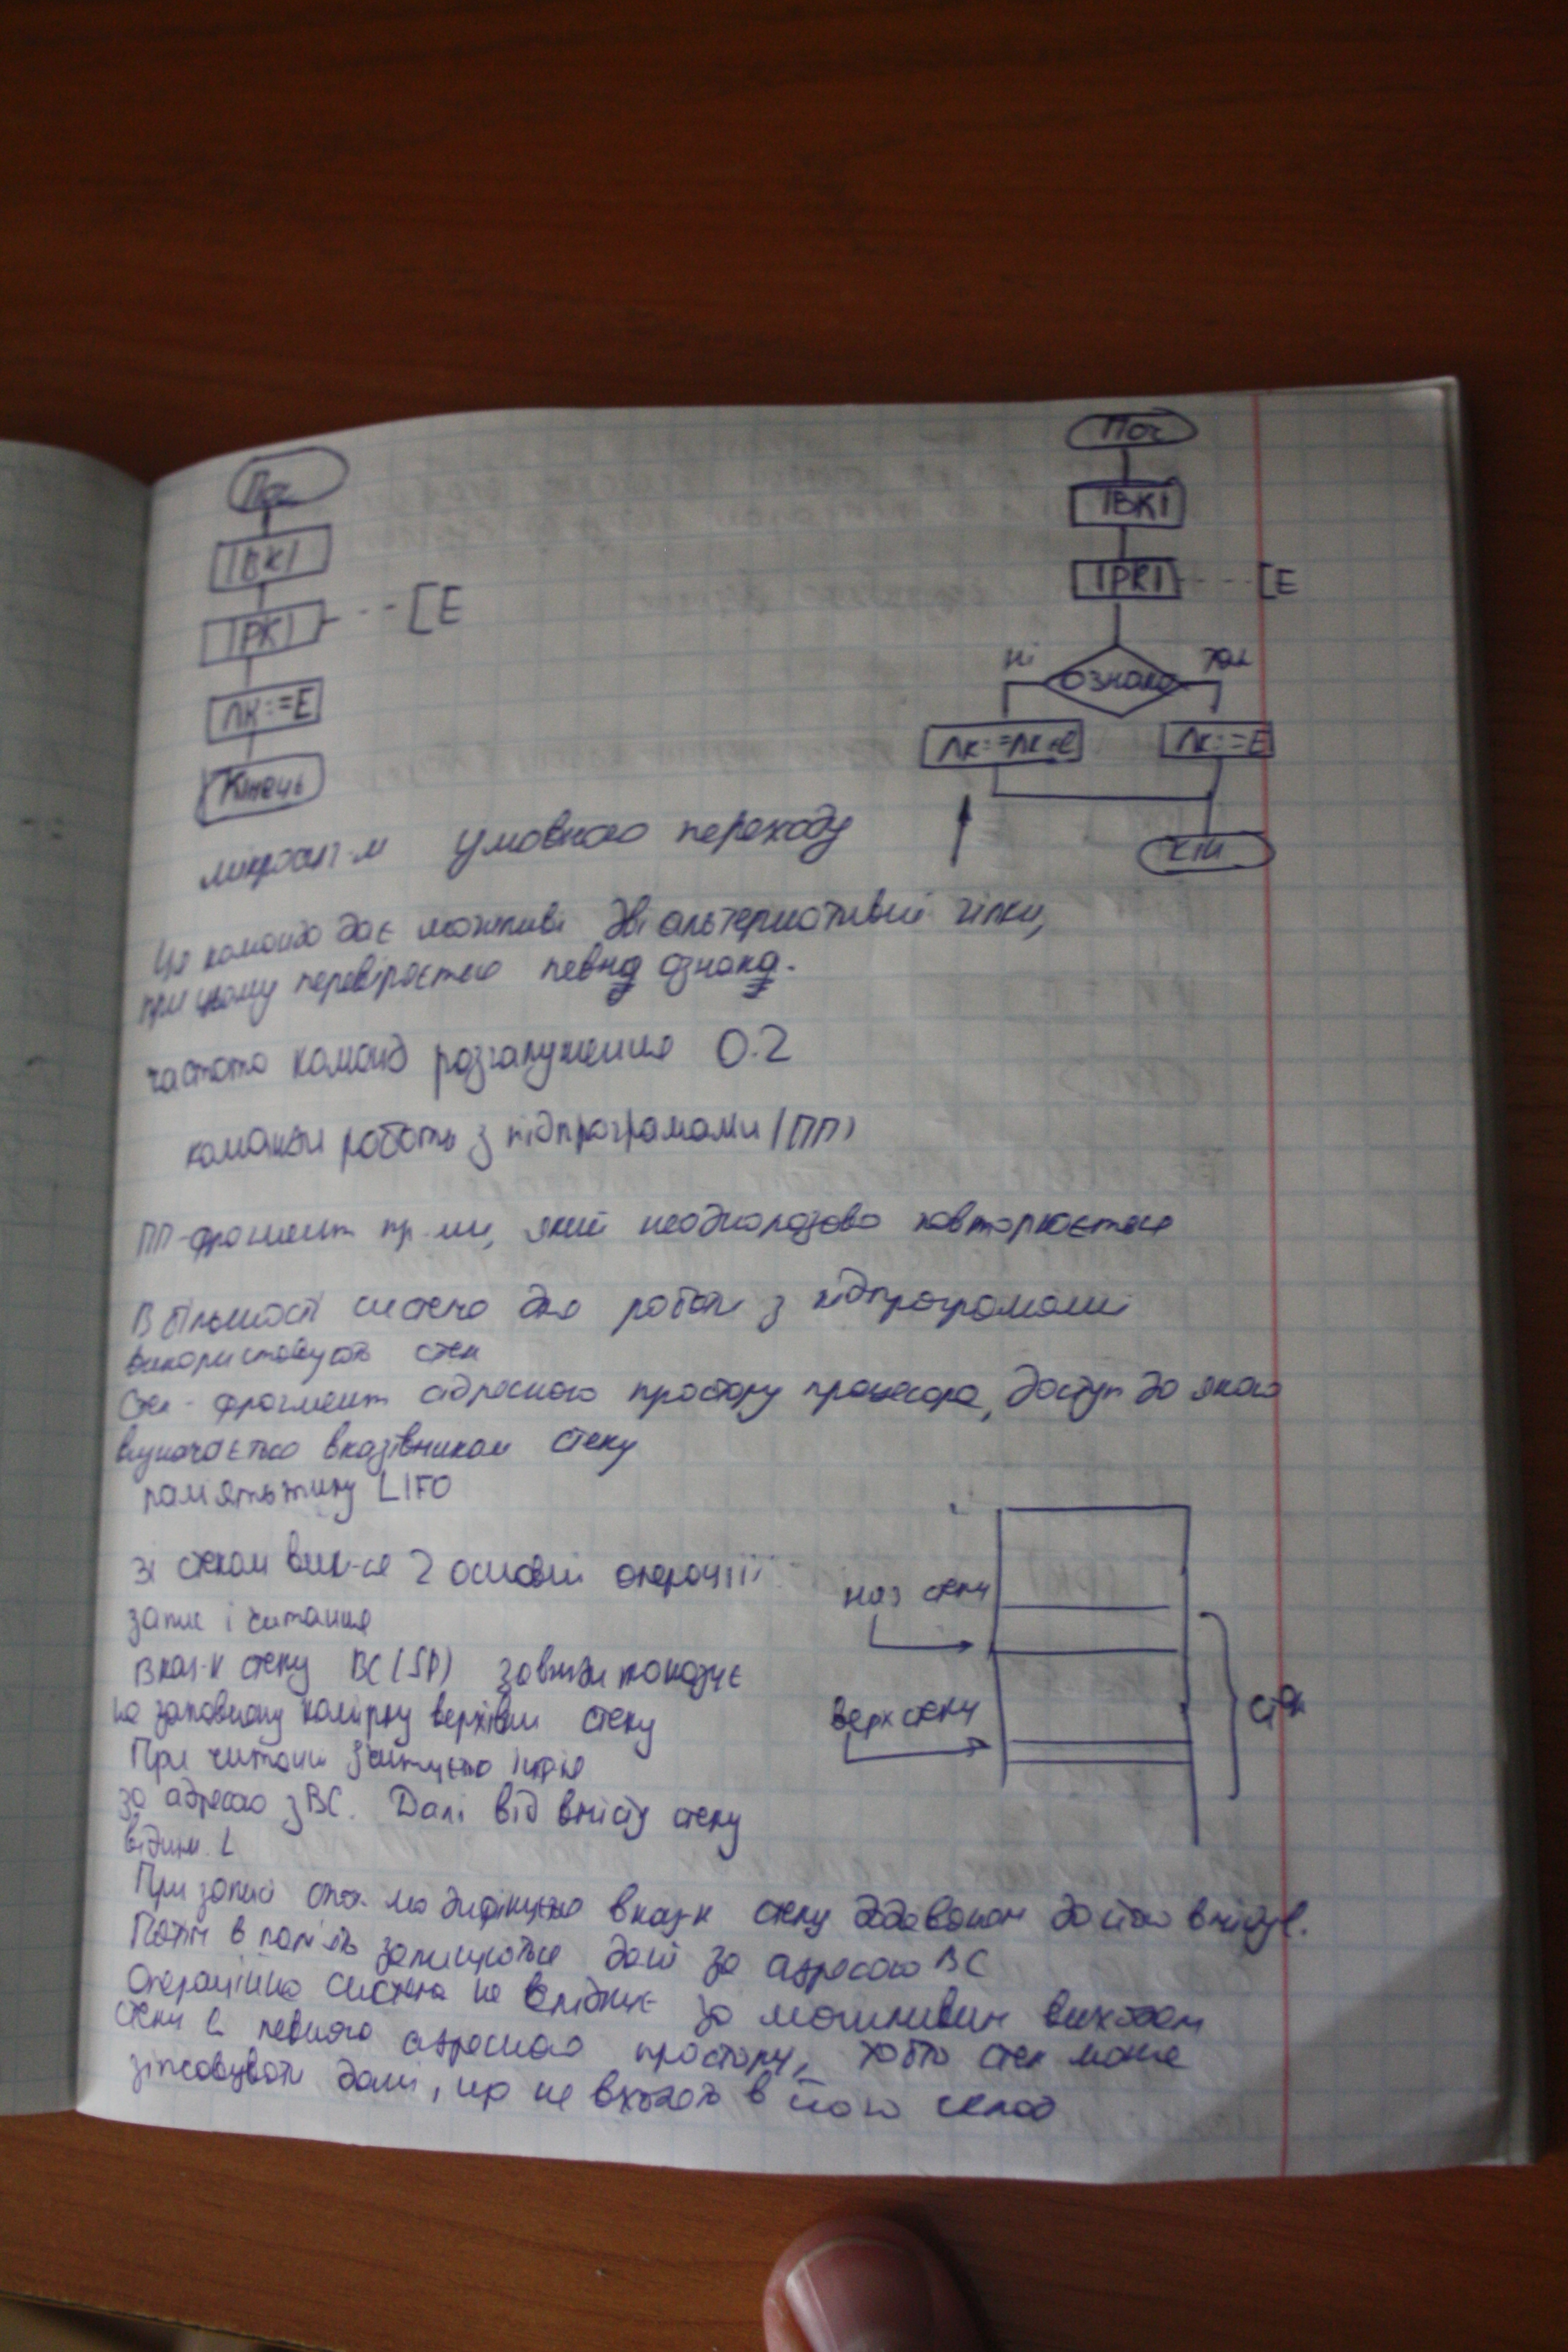 Поч
|ВК|
|РК| [Е
ЛК:=Е
Кінець
Поч
|ВК|
|РК| [Е
ні ознака так
ЛК:=ЛК+ℓ ЛК:=Е
Кін
мікроалг-м умовного переходу
Ця команда дає можливі дві альтернативні гілки,
при цьому перевіряється певна ознака.
частота команд розгалуження 0.2
команди роботи з підпрограмами (ПП)
ПП-фрагмент пр-ми, який неодноразово повторюється
В більшості систем для роботи з підпрограмами
використовують стек
Стек - фрагмент адресного простору процесора, доступ до якого
визначається вказівником стеку
пам'ять типу LIFO
зі стеком вик-ся 2 основні операції:
запис і читання
Вказ-к стеку ВС(SP) завжди показує
на заповнену комірку верхівки стеку
При читанні зчитується інф-я
за адресою з ВС. Далі від вмісту стеку
відним. ℓ
наз стеку
Верх стеку
стек
При записі модифікується вказ-к стеку додаванням до його вмісту ℓ.
Потім в пам'ять записуються дані за адресою ВС
Операційна система не слідкує за можливим виходом
стеку з певного адресного простору, тобто стек може
зіпсовувати дані, що не входять в його склад